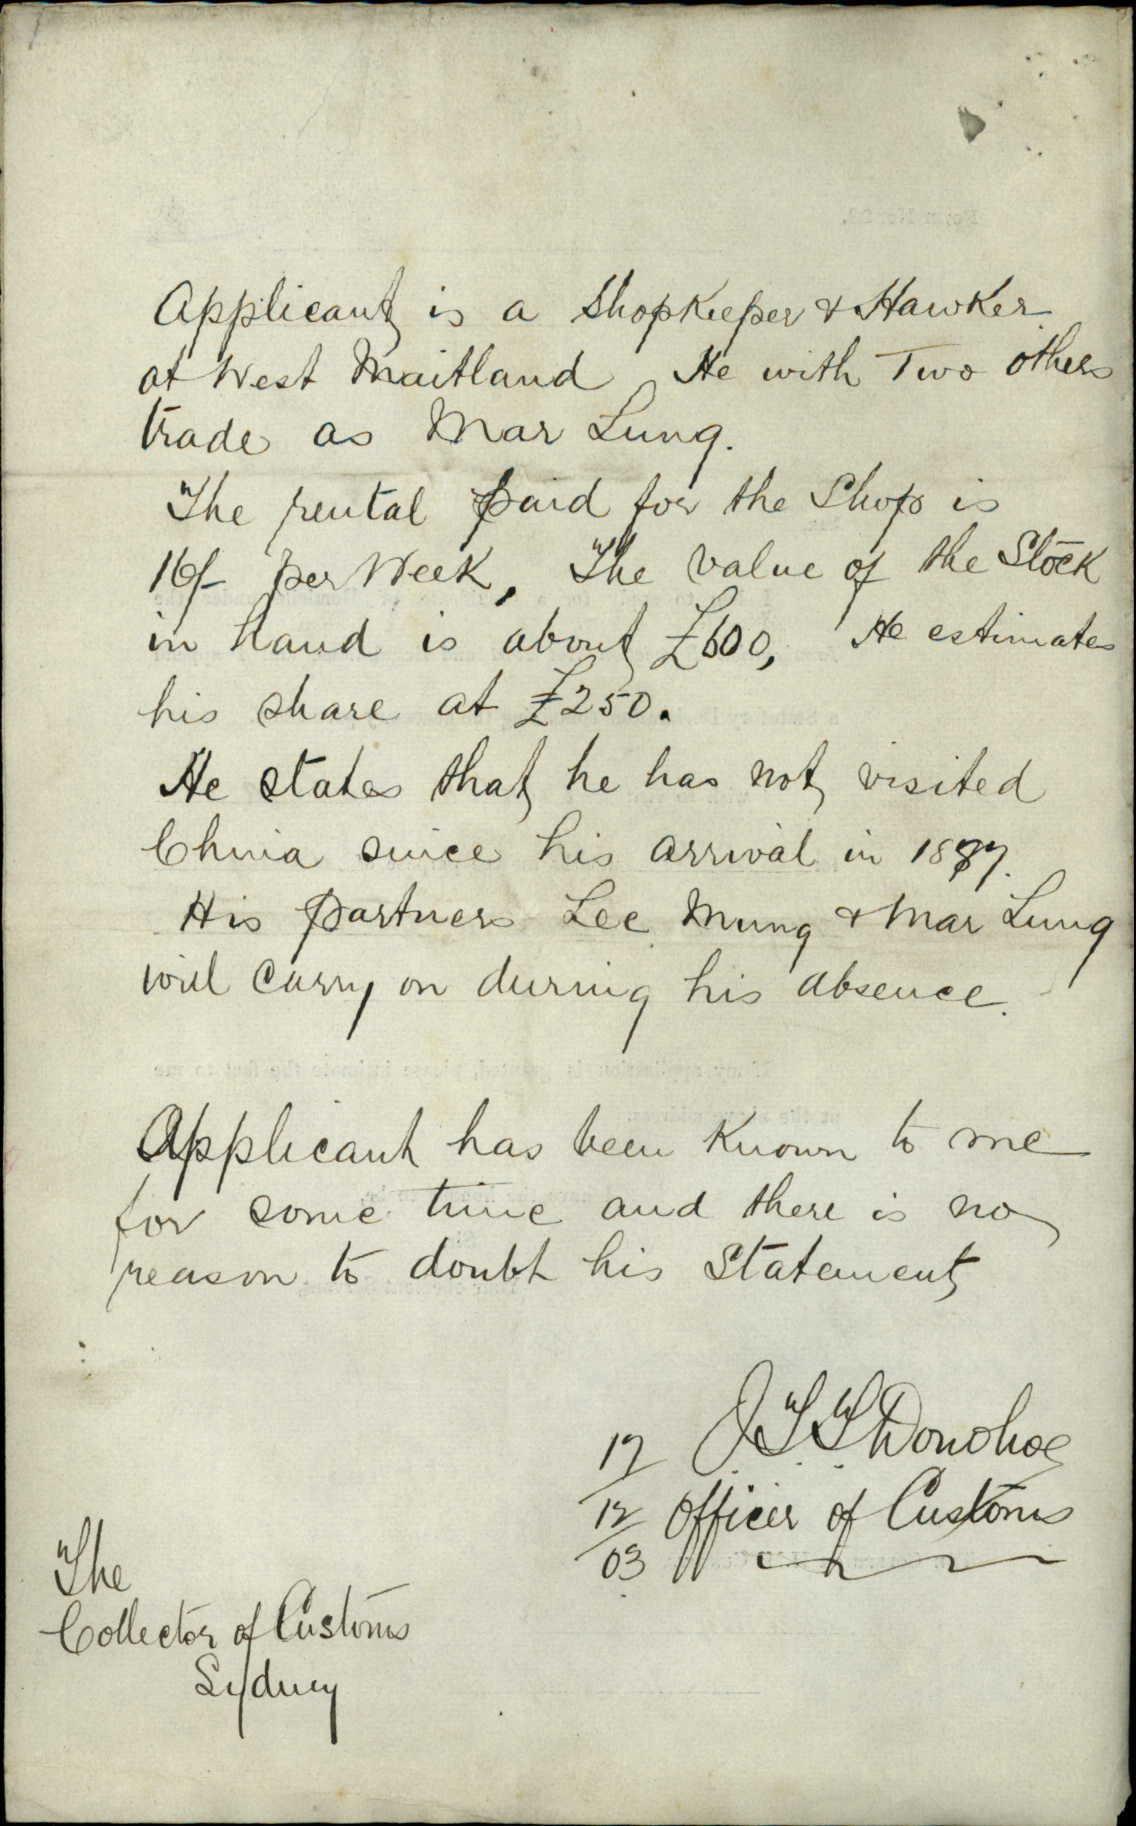 Applicant is a Shopkeeper & Hawker
at West Maitland He with Two others
trade as Mar Lung.
The rental paid for the Shop is
16/- per Week, The value of the Stock
in hand is about £600, He estimates
his share at £250.
He states that he has not visited
China since his arrival in 1887.
His partners Lee Mung & Mar Lung
will carry on during his absence.
Applicant has been known to me
for some time and there is no
reason to doubt his Statement
17 J.T.T. Donohoe
12 Officer of Customs
03
The
Collector of Customs
Sydney